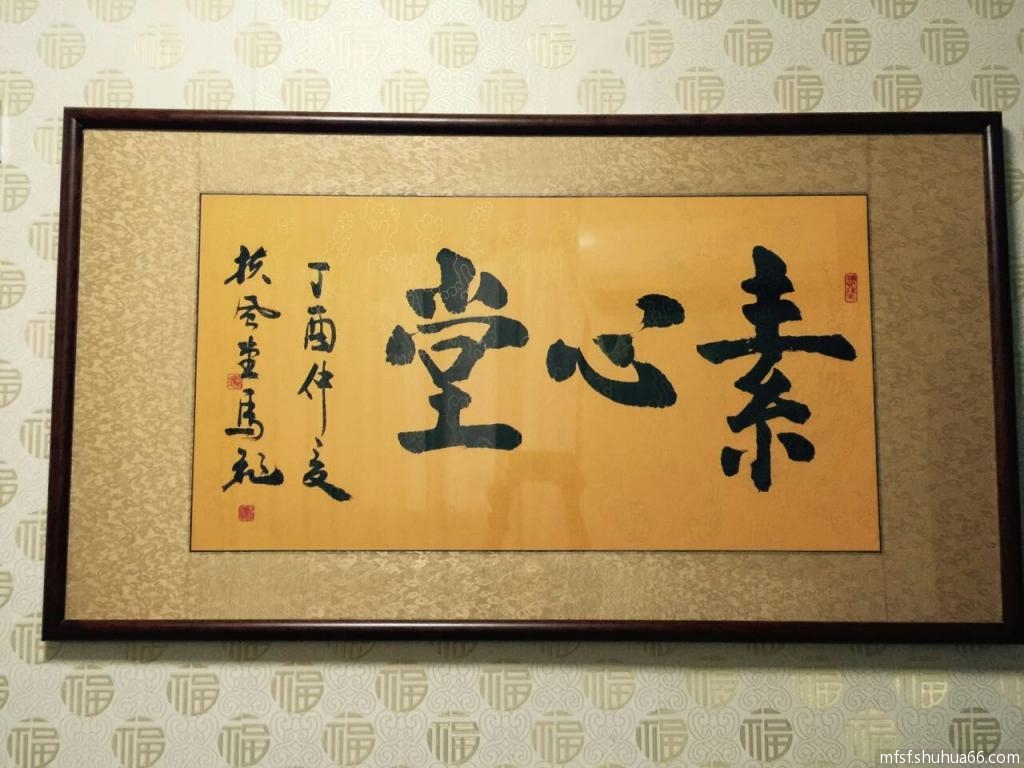 素心堂
丁酉仲夏
扶风堂马
mfsf.shuhua66.com